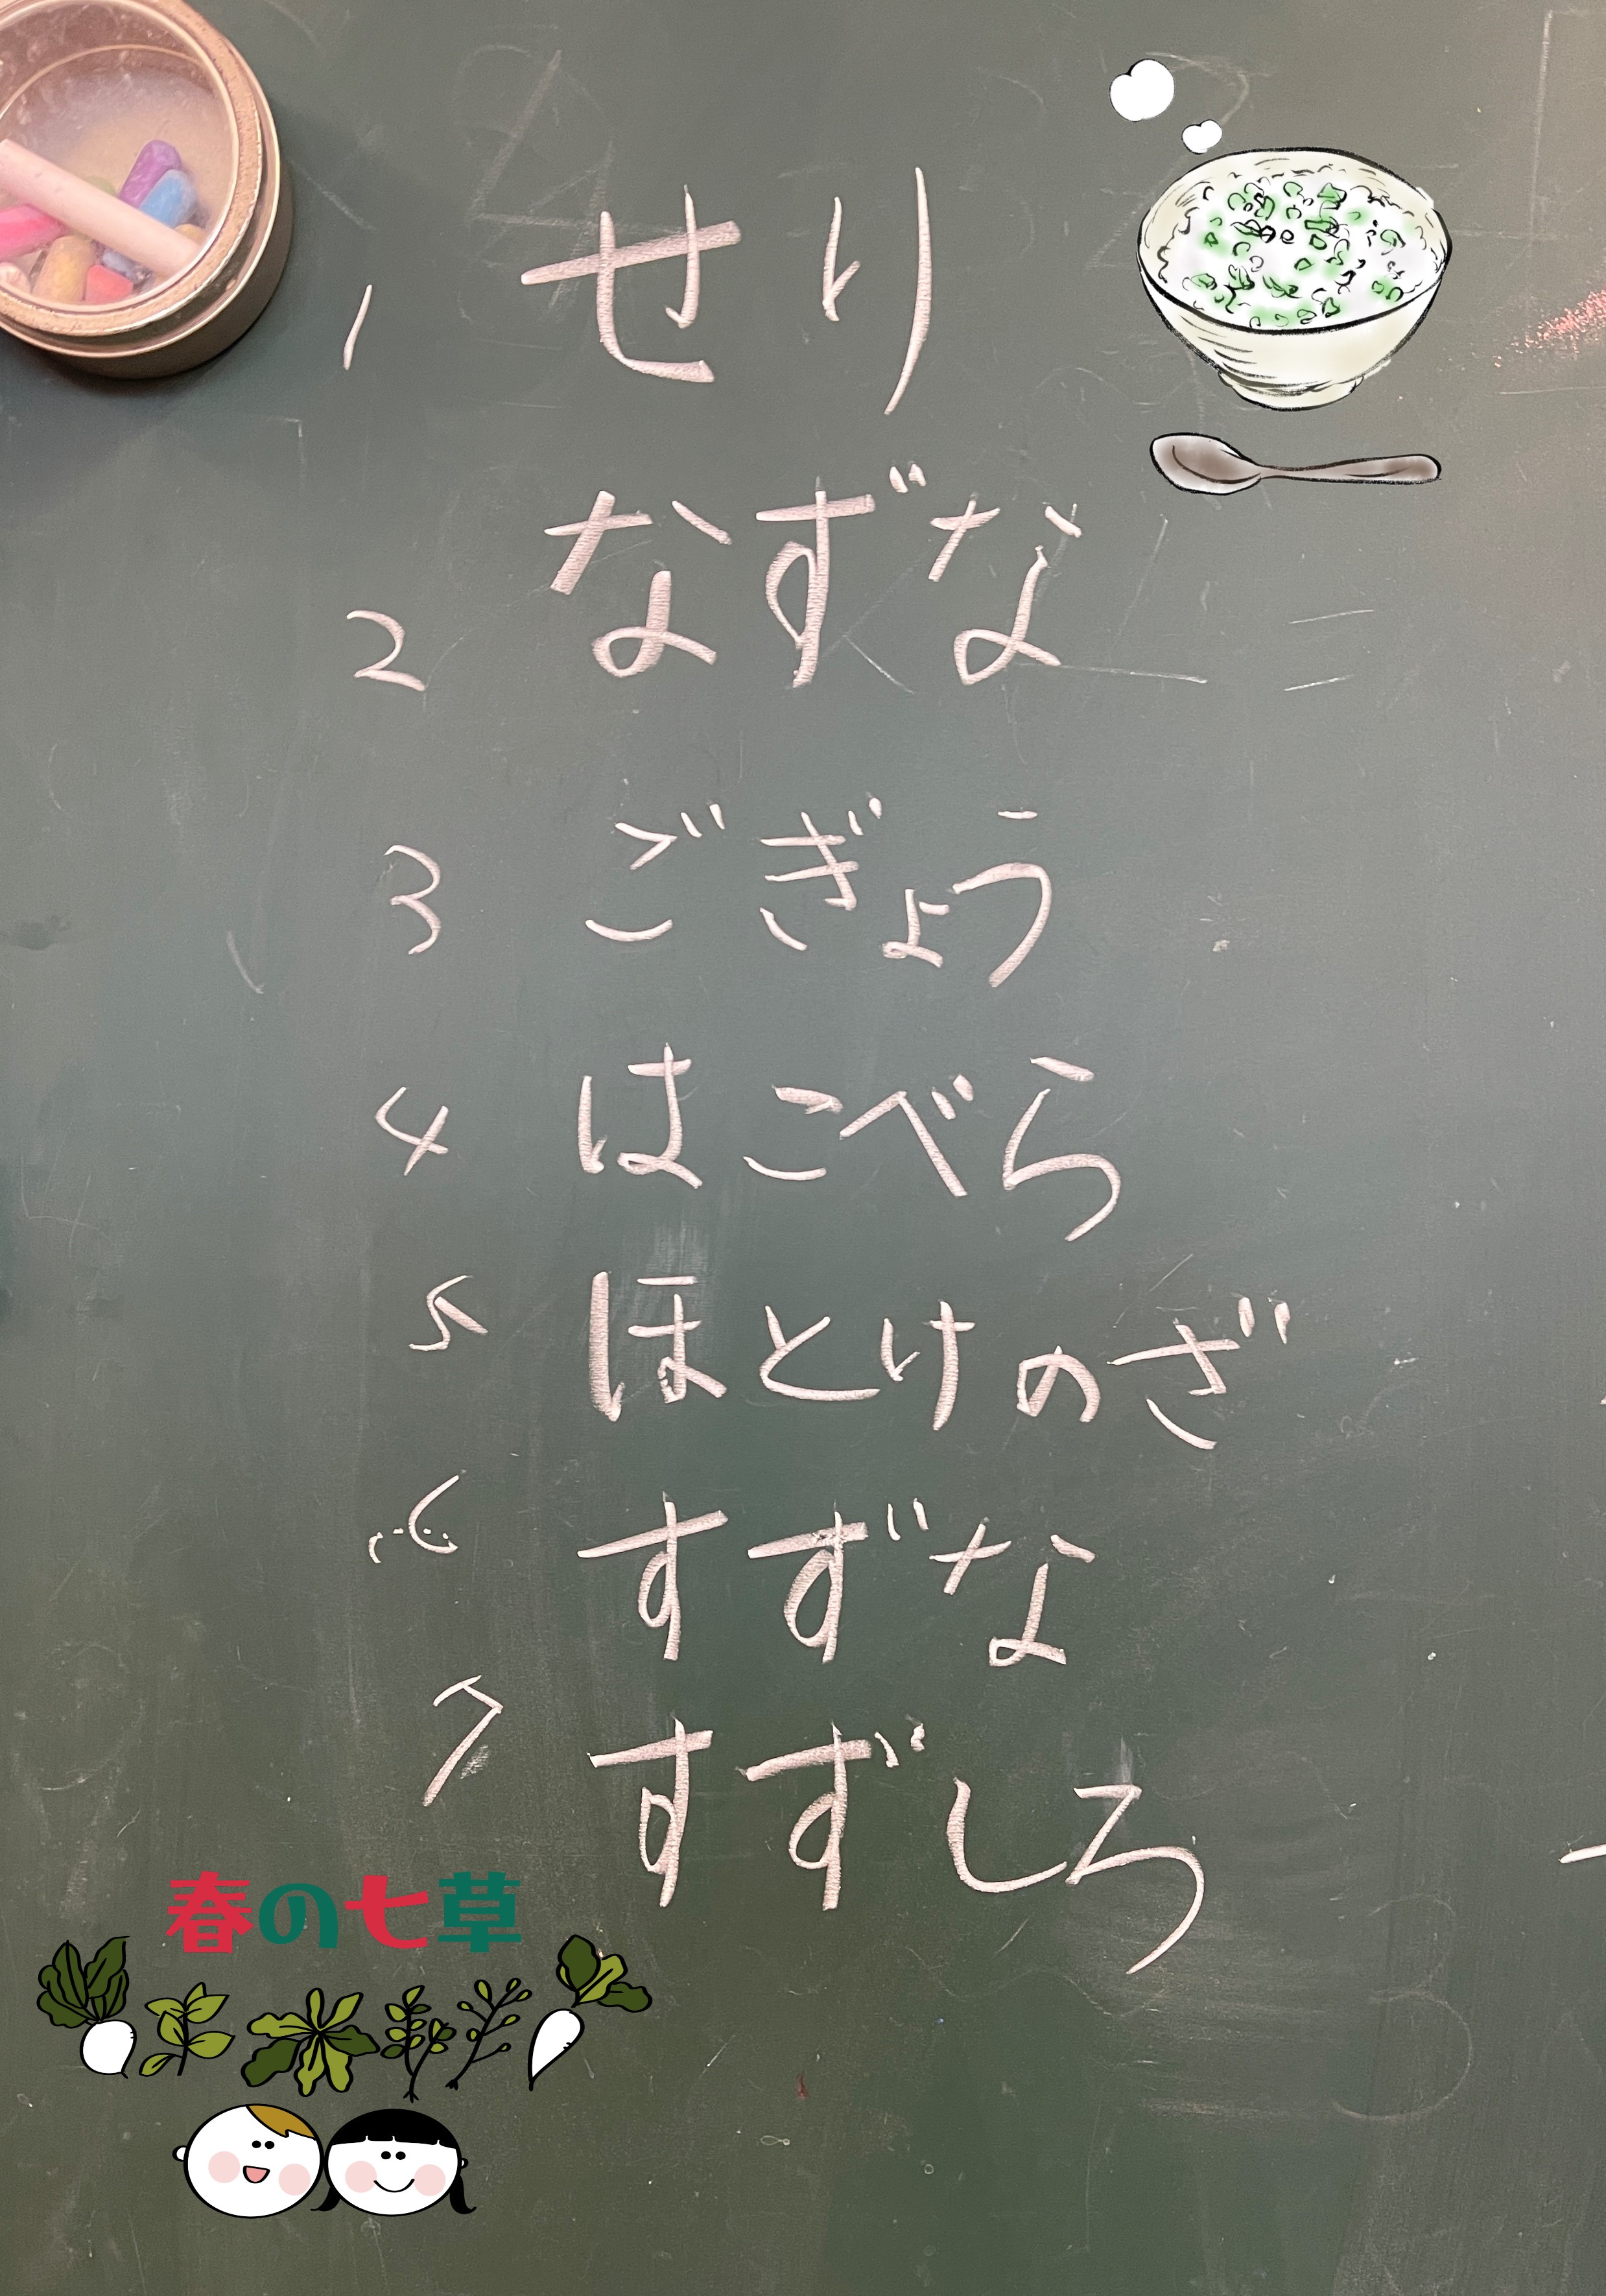 1 せり
2 なずな
3 ごぎょう
4 はこべら
5 ほとけのざ
6 すずな
7 すずしろ
春の七草